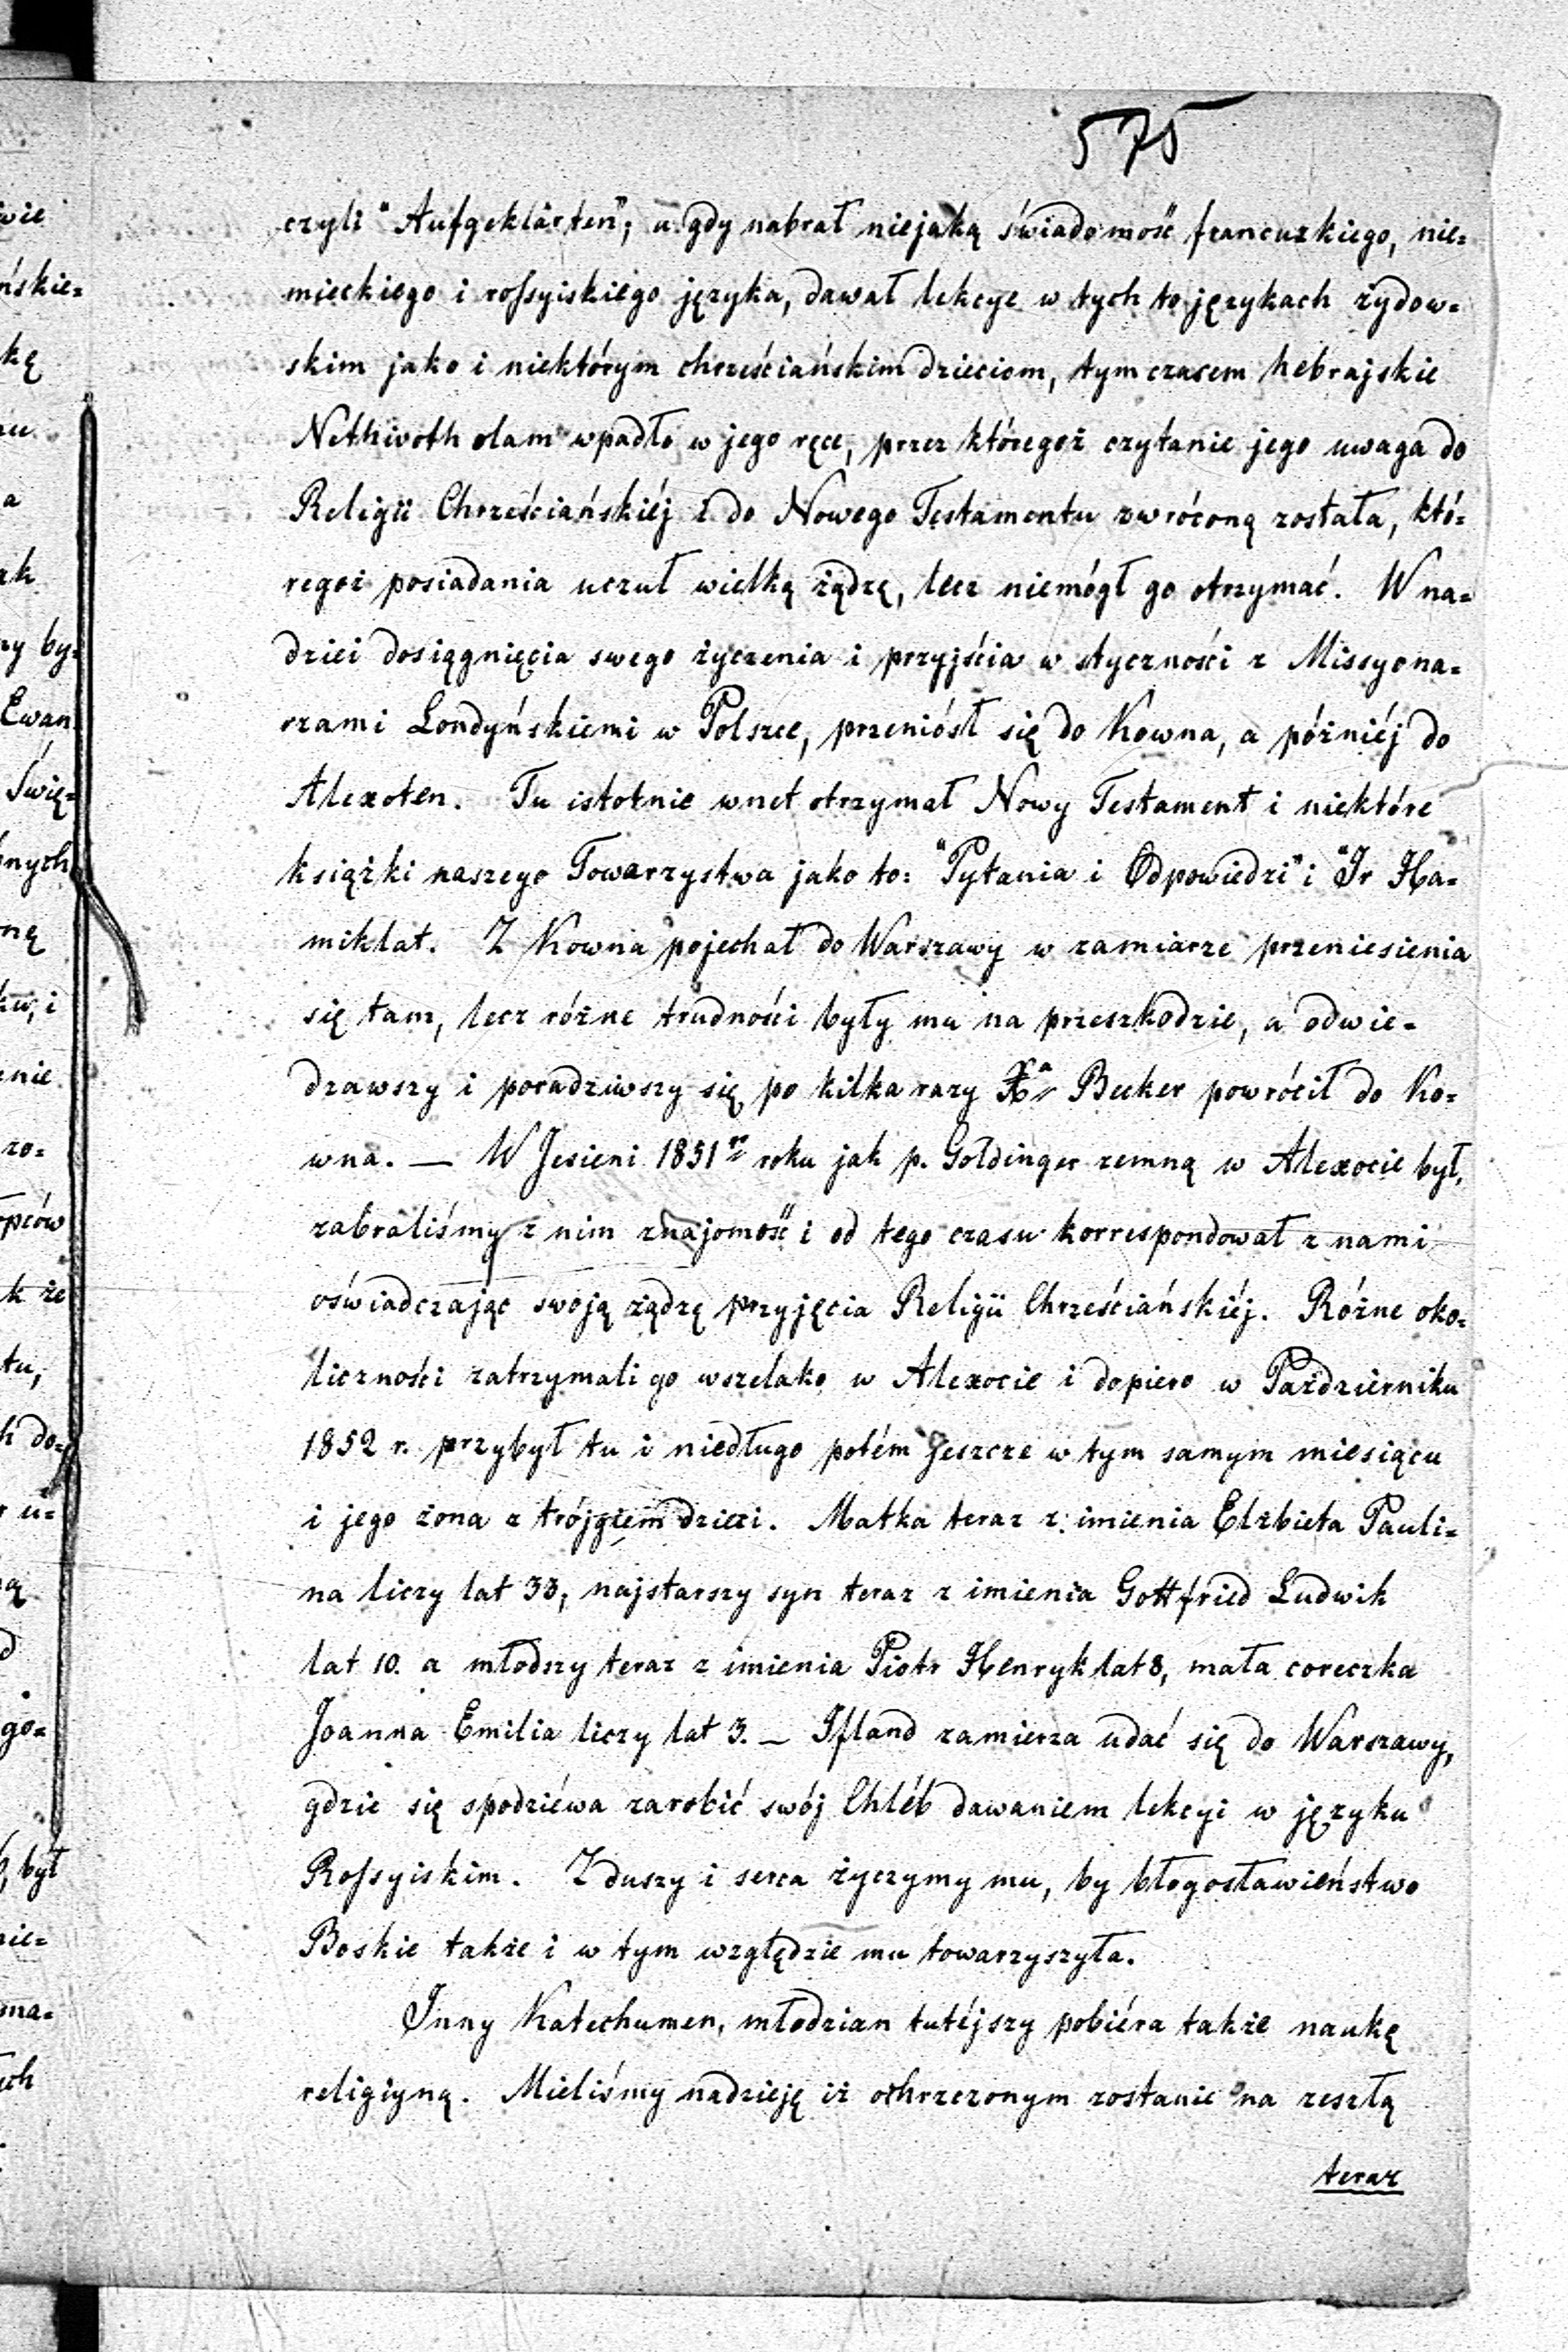 575
czyli "Aufgeklärten", a gdy nabrał niejaką świadomość francuzkiego, nie=
mieckiego i rossyiskiego języka, dawał lekcye w tych to językach żydow=
skim jako i niektórym chrześciańskim dzieciom, tymczasem hebrajskie
Nethivoth olam wpadło w jego ręce, przez któregoż czytanie jego uwaga do
Religii Chrześciańskiéj i do Nowego Testamentu zwróconą została, któ=
regoż posiadania uczuł wielką żądzę, lecz niemógł go otrzymać. W na=
dziei dosiągnięcia swego życzenia i przyjścia w styczności z Missyona=
rzami Londyńskiemi w Polszce, przeniósł się do Kowna, a późniéj do
Alexoten. Tu istotnie wnet otrzymał Nowy Testament i niektóre
książki naszego Towarzystwa jako to: "Pytania i Odpowiedzi" i "Ir Ha=
miklat. Z Kowna pojechał do Warszawy w zamiarze przeniesienia
się tam, lecz różne trudności były mu na przeszkodzie, a odwie=
dzawszy i poradziwszy się po kilka razy Xa Becker powrócił do Ko=
wna. — W Jesieni 1851go roku jak p. Goldinger zemną w Alexocie był,
zabraliśmy z nim znajomość i od tego czasu korrespondował z nami
oświadczając swoją żądzę przyjęcia Religii Chrześciańskiéj. Różne oko=
liczności zatrzymali go wszelako w Alexocie i dopiero w Październiku
1852 r. przybył tu i niedługo potém jeszcze w tym samym miesiącu
i jego żona z trójgiem dzieci. Matka teraz z imienia Elżbieta Pauli=
na liczy lat 33, najstarszy syn teraz z imienia Gottfried Ludwik
lat 10. a młodszy teraz z imienia Piotr Henryk lat 8, mała coreczka
Joanna Emilia liczy lat 3. — Ifland zamierza udać się do Warszawy,
gdzie się spodziéwa zarobić swój Chléb dawaniem lekcyi w języku
Rossyiskim. Z duszy i serca życzymy mu, by błogosławieństwo
Boskie także i w tym względzie mu towarzyszyła.
Inny Katechumen, młodzian tutéjszy pobiéra także naukę
religiyną. Mieliśmy nadzieję iż ochrzczonym zostanie na zeszłą
teraz